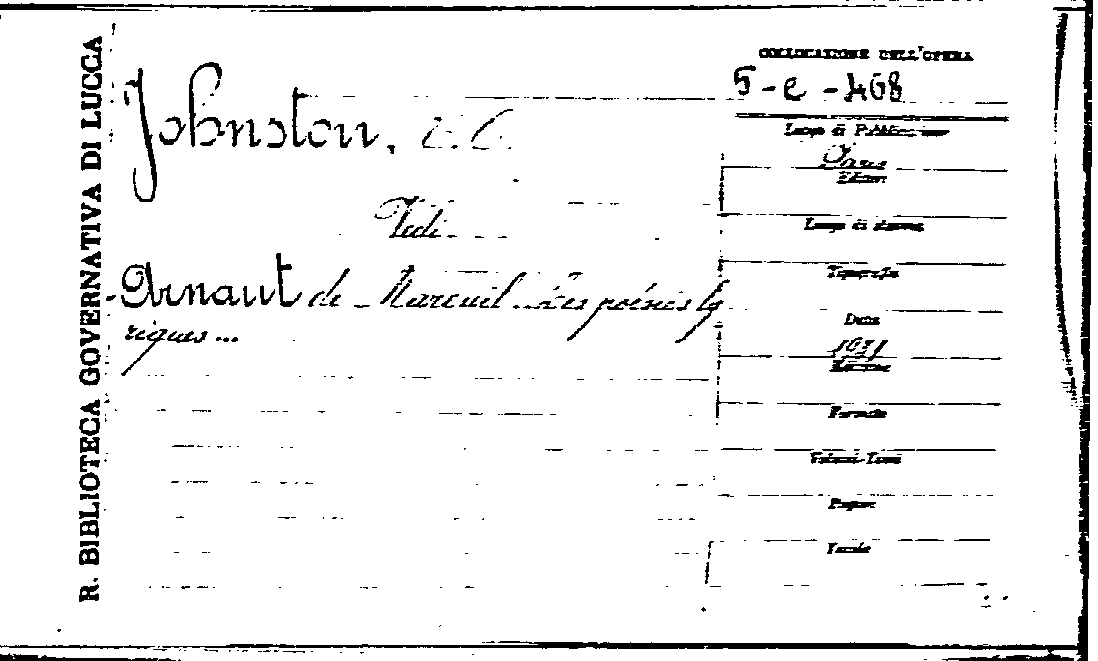 R. BIBLIOTECA GOVERNATIVA DI LUCCA
Johnston,
Vedi
Arnaut de Mareuil. Les poésies ly
riques ...
COLLOCAZIONE DELL'OPERA
5-e-468
Luogo di Pubblicazione
Paris
Editore
Luogo di stampa
Tipografia
Data
Edizione
Formato
Volumi-Tomi
Pagine
Tavole